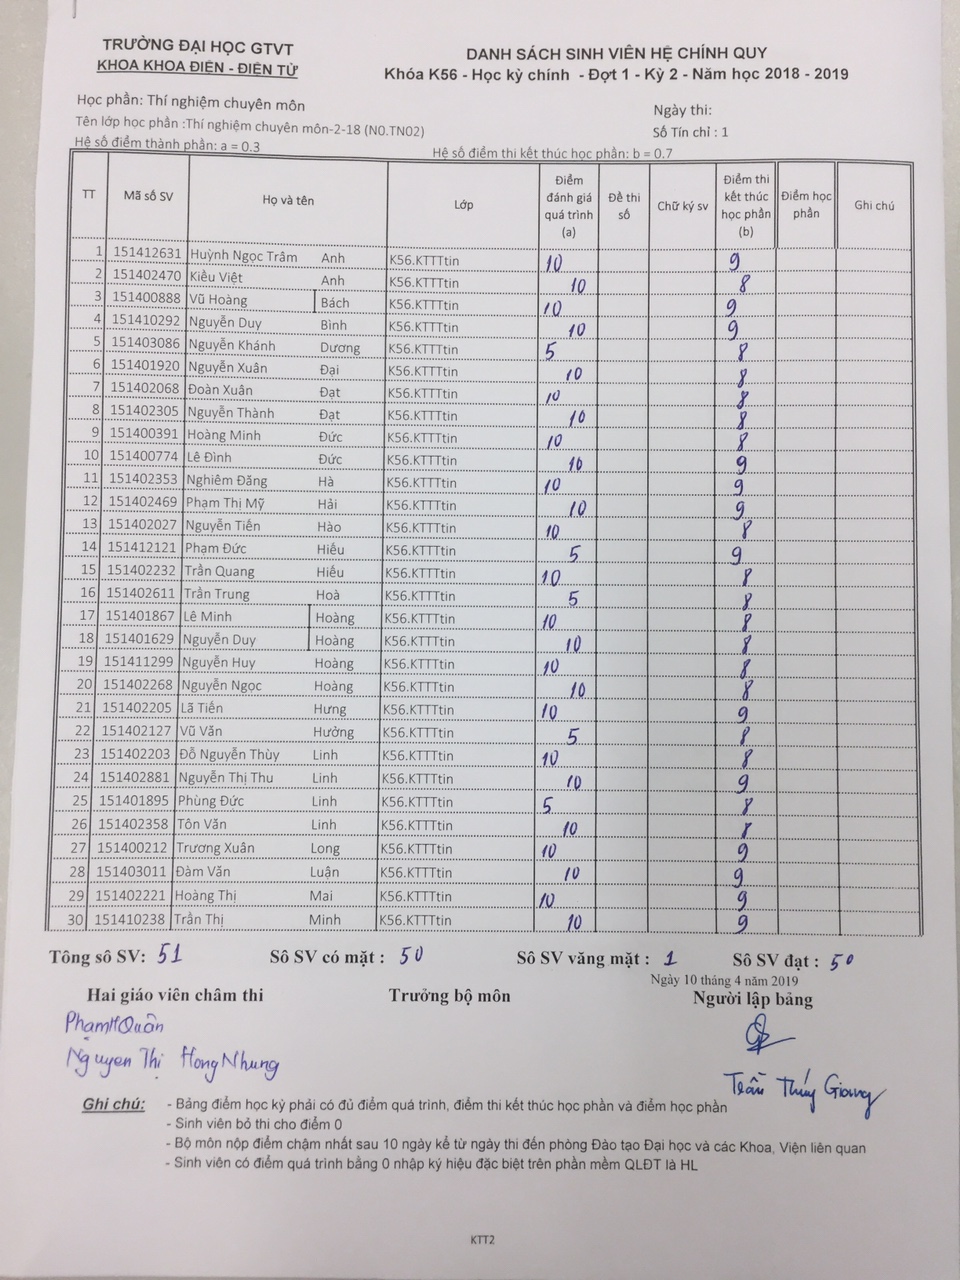 TRƯỜNG ĐẠI HỌC GTVT
KHOA KHOA ĐIỆN - ĐIỆN TỬ
DANH SÁCH SINH VIÊN HỆ CHÍNH QUY
Khóa K56 - Học kỳ chính - Đợt 1 - Kỳ 2 - Năm học 2018 - 2019
Học phần: Thí nghiệm chuyên môn
Ngày thi:
Tên lớp học phần :Thí nghiệm chuyên môn-2-18 (N0.TN02)
Số Tín chỉ : 1
Hệ số điểm thành phần: a = 0.3
Hệ số điểm thi kết thúc học phần: b = 0.7
TT Mã số SV Họ và tên Lớp Điểm đánh giá quá trình (a) Đề thi số Chữ ký sv Điểm thi kết thúc học phần (b) Điểm học phần Ghi chú
1 151412631 Huỳnh Ngọc Trâm Anh K56.KTTTtin 10 9
2 151402470 Kiều Việt Anh K56.KTTTtin 10 8
3 151400888 Vũ Hoàng Bách K56.KTTTtin 10 9
4 151410292 Nguyễn Duy Bình K56.KTTTtin 10 9
5 151403086 Nguyễn Khánh Dương K56.KTTTtin 5 8
6 151401920 Nguyễn Xuân Đại K56.KTTTtin 10 8
7 151402068 Đoàn Xuân Đạt K56.KTTTtin 10 8
8 151402305 Nguyễn Thành Đạt K56.KTTTtin 10 8
9 151400391 Hoàng Minh Đức K56.KTTTtin 10 8
10 151400774 Lê Đình Đức K56.KTTTtin 10 9
11 151402353 Nghiêm Đăng Hà K56.KTTTtin 10 9
12 151402469 Phạm Thị Mỹ Hải K56.KTTTtin 10 9
13 151402027 Nguyễn Tiến Hào K56.KTTTtin 10 8
14 151412121 Phạm Đức Hiếu K56.KTTTtin 5 9
15 151402232 Trần Quang Hiếu K56.KTTTtin 10 8
16 151402611 Trần Trung Hoà K56.KTTTtin 5 8
17 151401867 Lê Minh Hoàng K56.KTTTtin 10 8
18 151401629 Nguyễn Duy Hoàng K56.KTTTtin 10 8
19 151411299 Nguyễn Huy Hoàng K56.KTTTtin 10 8
20 151402268 Nguyễn Ngọc Hoàng K56.KTTTtin 10 8
21 151402205 Lã Tiến Hưng K56.KTTTtin 10 9
22 151402127 Vũ Văn Hưởng K56.KTTTtin 5 8
23 151402203 Đỗ Nguyễn Thùy Linh K56.KTTTtin 10 8
24 151402881 Nguyễn Thị Thu Linh K56.KTTTtin 10 9
25 151401895 Phùng Đức Linh K56.KTTTtin 5 8
26 151402358 Tôn Văn Linh K56.KTTTtin 10 8
27 151400212 Trương Xuân Long K56.KTTTtin 10 9
28 151403011 Đàm Văn Luận K56.KTTTtin 10 9
29 151402221 Hoàng Thị Mai K56.KTTTtin 10 9
30 151410238 Trần Thị Minh K56.KTTTtin 10 9
Tông sô SV: 51 Sô SV có mặt : 50 Sô SV văng mặt : 1 Sô SV đạt : 50
Ngày 10 tháng 4 năm 2019
Hai giáo viên châm thi Trưởng bộ môn Người lập bảng
Phạm H Quân
Nguyen Thị Hong Nhung
Trần Thúy Giang
Ghi chú: - Bảng điểm học kỳ phải có đủ điểm quá trình, điểm thi kết thúc học phần và điểm học phần
- Sinh viên bỏ thi cho điểm 0
- Bộ môn nộp điểm chậm nhất sau 10 ngày kể từ ngày thi đến phòng Đào tạo Đại học và các Khoa, Viện liên quan
- Sinh viên có điểm quá trình bằng 0 nhập ký hiệu đặc biệt trên phần mềm QLĐT là HL
KTT2